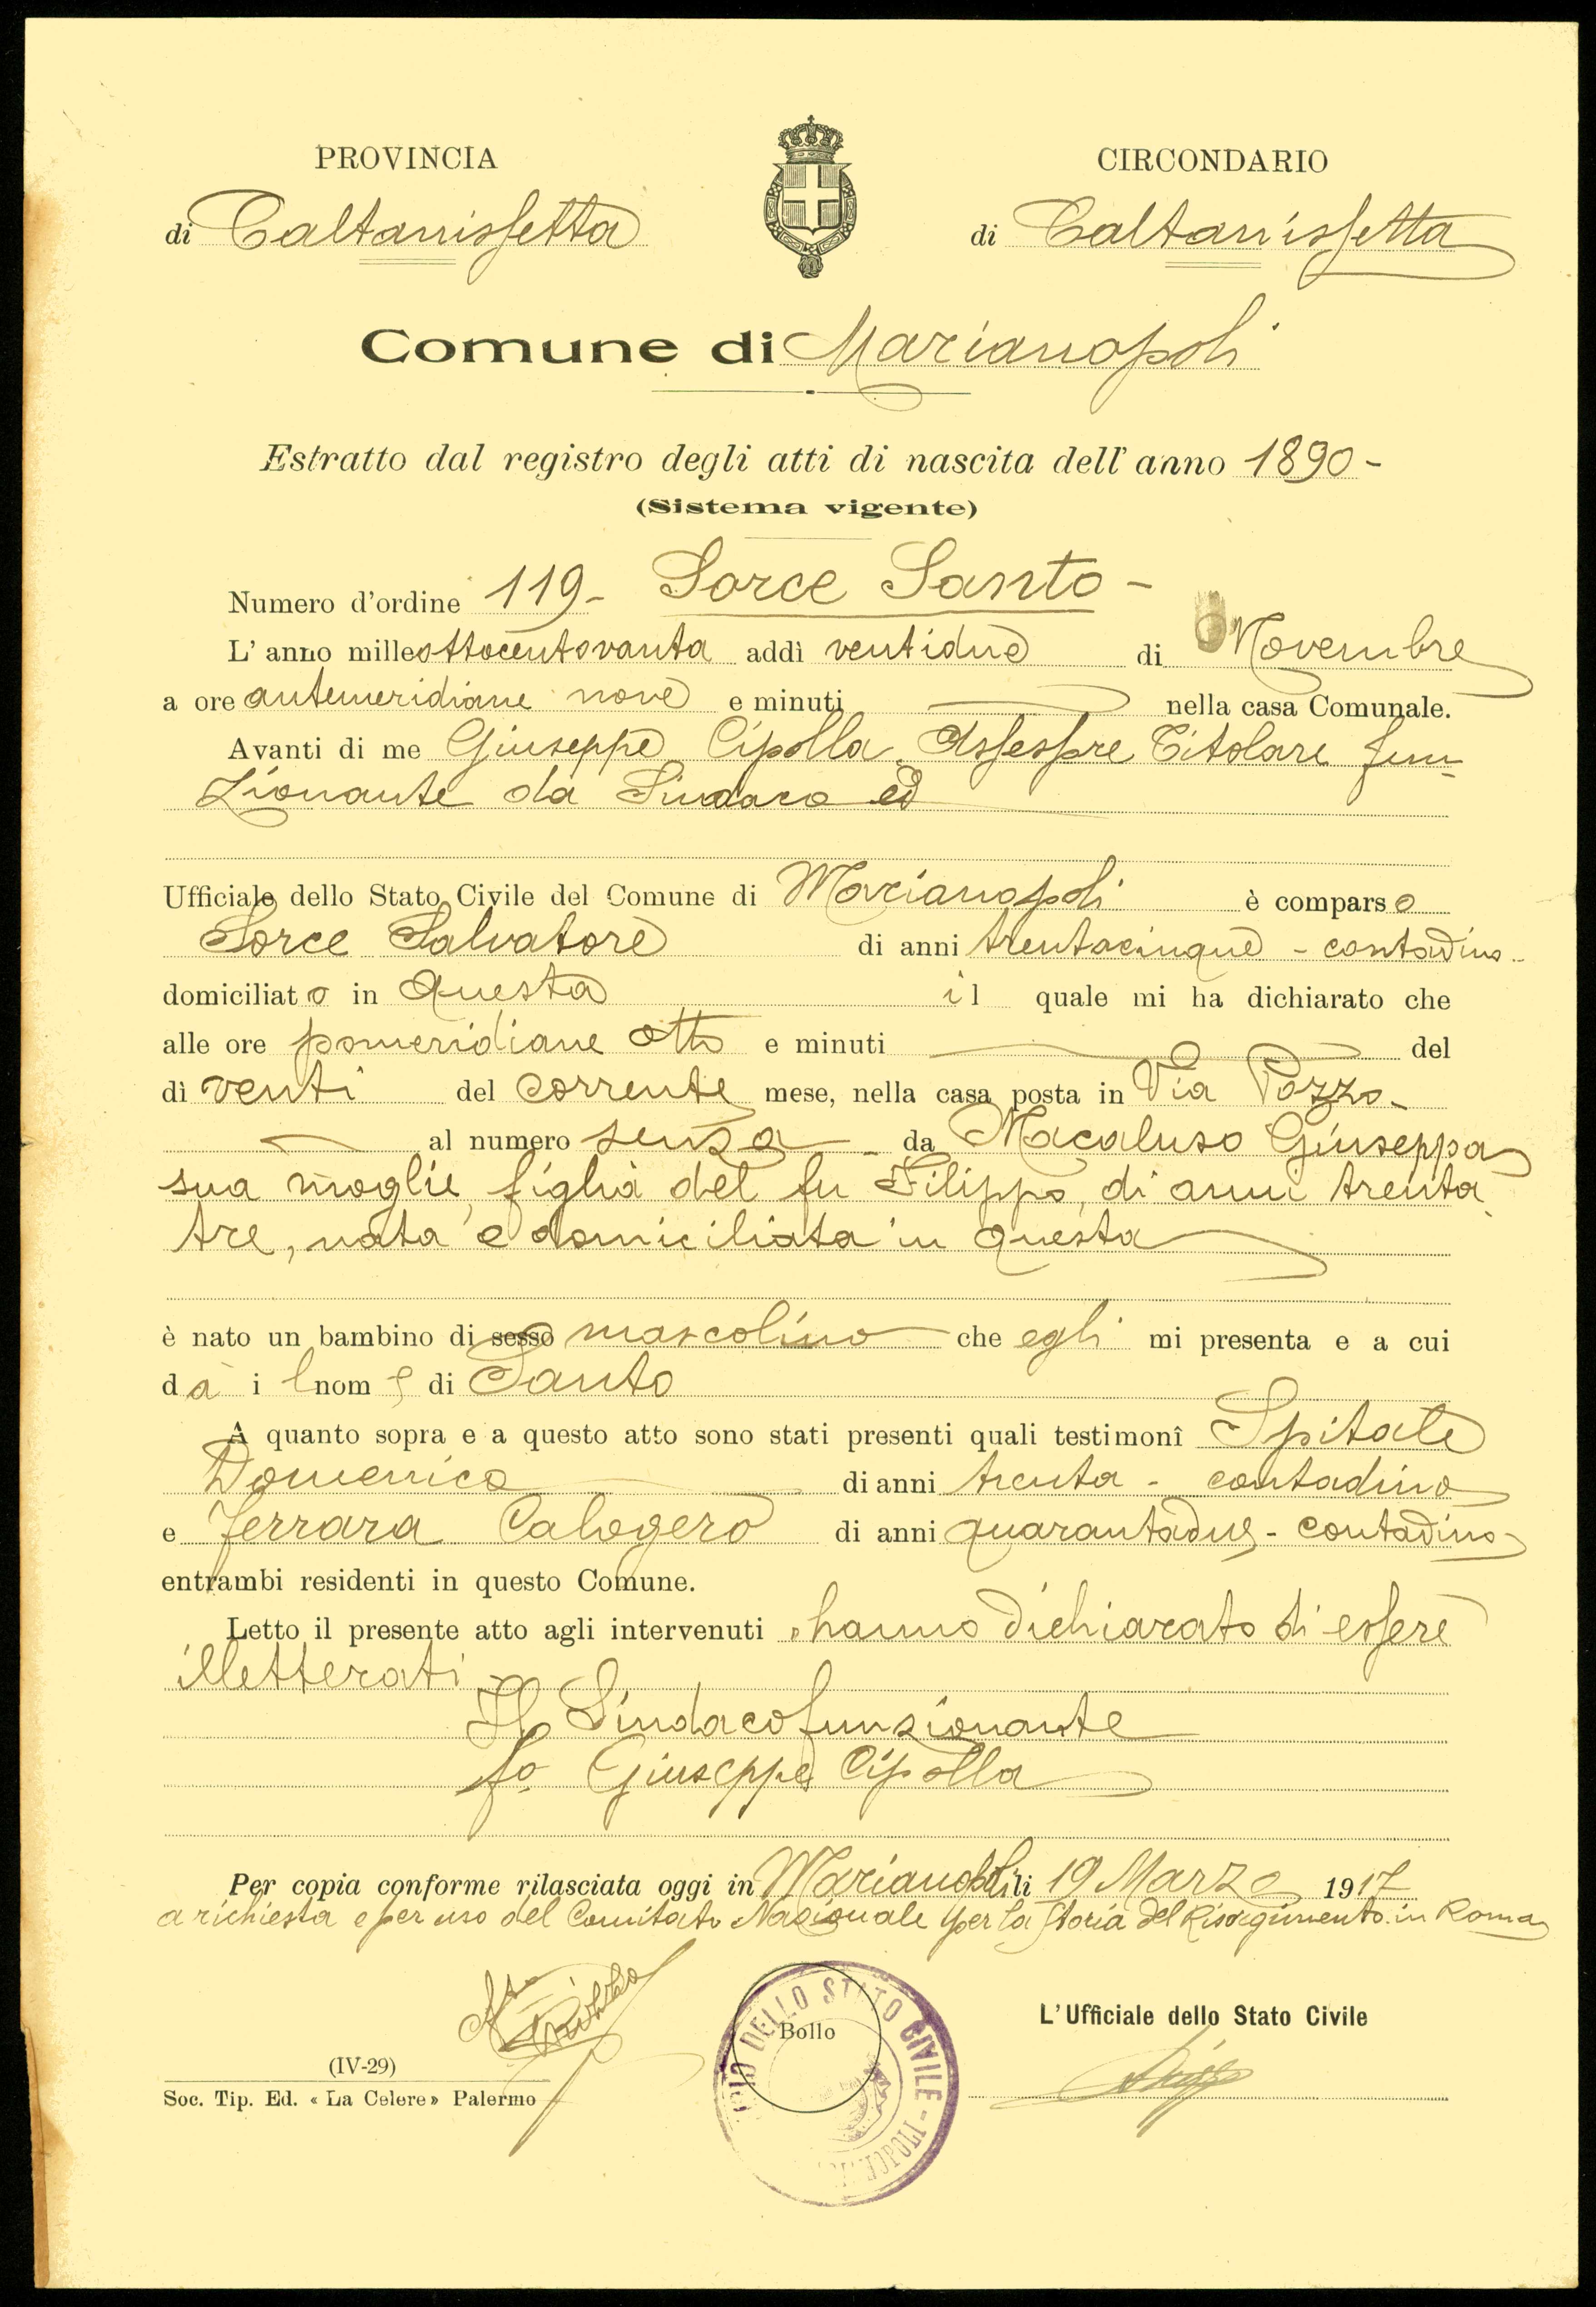 PROVINCIA
CIRCONDARIO
di Caltanissetta
di Caltanissetta
Comune di Marianopoli
Estratto dal registro degli atti di nascita dell'anno 1890-
(Sistema vigente)
Numero d'ordine 119- Sorce Santo-
L'anno milleottocentovanta addì ventidue di Novembre
a ore antemeridiane nove e minuti nella casa Comunale.
Avanti di me Giuseppe Cipolla Assessore Titolare fun
zionante da Sindaco ed
Ufficiale dello Stato Civile del Comune di Marianopoli è comparso
Sorce Salvatore di anni trentacinque - contadino -
domiciliato in questa il quale mi ha dichiarato che
alle ore pomeridiane otto e minuti del
dì venti del corrente mese, nella casa posta in Via Pozzo-
al numero senza da Macaluso Giuseppa
sua moglie, figlia del fu Filippo, di anni trenta
tre, nata e domiciliata in questa
è nato un bambino di sesso mascolino che egli mi presenta e a cui
dà il nome di Santo
A quanto sopra e a questo atto sono stati presenti quali testimonî Spitale
Domenico di anni trenta - contadino
e Ferrara Calogero di anni quarantadue - contadino
entrambi residenti in questo Comune.
Letto il presente atto agli intervenuti hanno dichiarato di essere
illetterati
Il Sindaco funzionante
fo Giuseppe Cipolla
Per copia conforme rilasciata oggi in Marianopoli li 19 Marzo 1917
a richiesta e per uso del Comitato Nazionale per la Storia del Risorgimento in Roma
DELLO STATO CIVILE
Bollo
L'Ufficiale dello Stato Civile
(IV-29)
Soc. Tip. Ed. « La Celere » Palermo